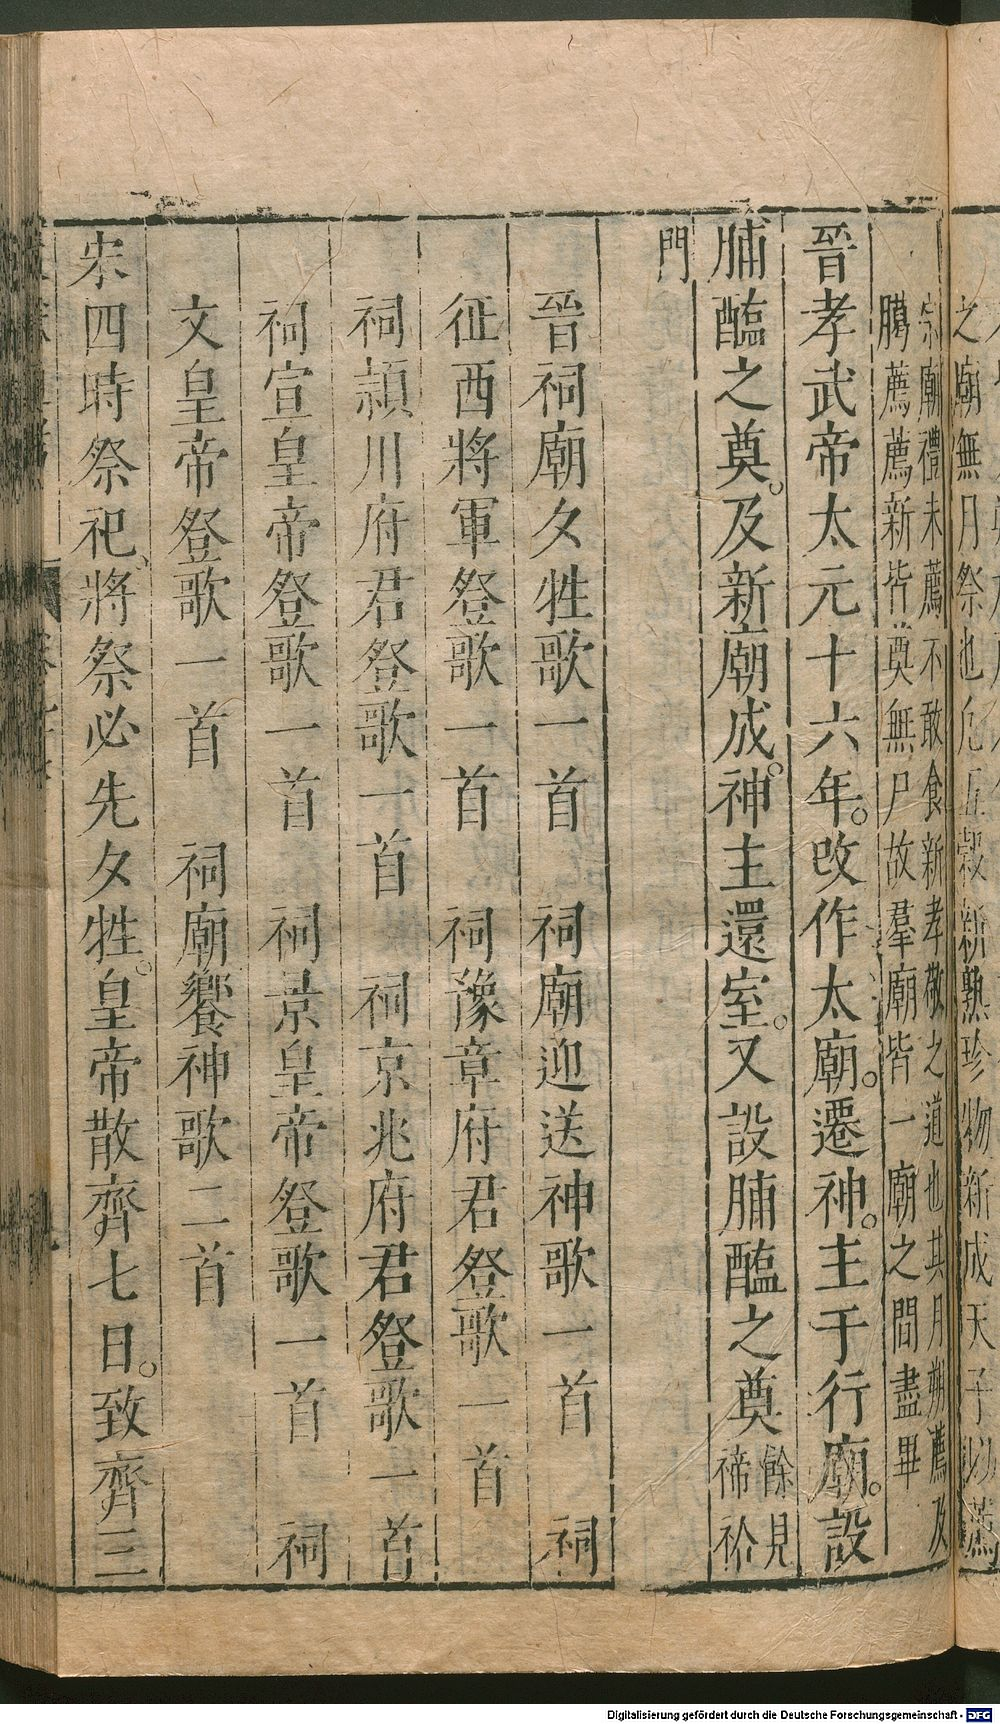 之廟無月祭也危五穀新熟珍物新成天子以薦
宗廟禮未薦不敢食新孝敬之道也其月朔薦及
臈薦薦新皆奠無尸故羣廟皆一廟之間盡畢
晉孝武帝太元十六年。改作太廟。遷神。主于行廟。設
脯醢之奠。及新廟成。神主還室。又設脯醢之奠餘見
禘祫
門
晉祠廟夕牲歌一首　祠廟迎送神歌一首　祠
征西將軍登歌一首　祠豫章府君登歌一首
祠潁川府君登歌一首　祠京兆府君登歌一首
祠宣皇帝登歌一首　祠景皇帝登歌一首　祠
文皇帝登歌一首　祠廟饗神歌二首
宋四時祭祀、將祭必先夕牲。皇帝散齊七日。致齊三
Digitalisierung gefördert durch die Deutsche Forschungsgemeinschaft - DFG